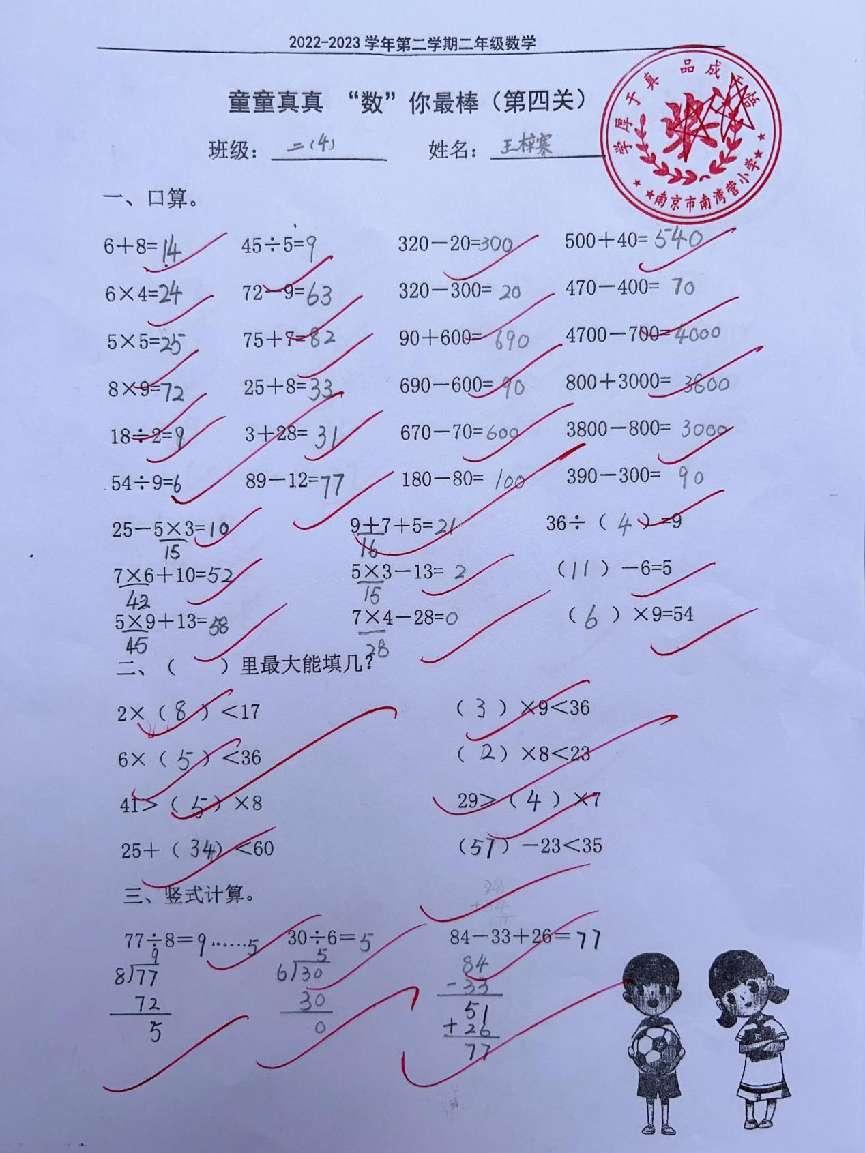 2022-2023 学年第二学期二年级数学
童童真真 “数”你最棒（第四关）
班级： 二(4) 姓名： 王梓寒
学厚于真 品成于
南京市南湾营小学
一、口算。
6＋8=14 45÷5=9 320－20=300 500＋40=540
6×4=24 72－9=63 320－300=20 470－400=70
5×5=25 75＋7=82 90＋600=690 4700－700=4000
8×9=72 25＋8=33 690－600=90 800＋3000=3800
18÷2=9 3＋28=31 670－70=600 3800－800=3000
54÷9=6 89－12=77 180－80=100 390－300=90
25－5×3=10 9＋7＋5=21 36÷（4）=9
15 16
7×6＋10=52 5×3－13=2 （11）－6=5
42 15
5×9＋13=58 7×4－28=0 （6）×9=54
45 28
二、（ ）里最大能填几？
2×（8）<17 （3）×9<36
6×（5）<36 （2）×8<23
41>（5）×8 29>（4）×7
25＋（34）<60 （57）－23<35
三、竖式计算。
77÷8＝9……5 30÷6＝5 84－33＋26＝77
9 5 84
8)77 6)30 -33
72 30 51
5 0 +26
77